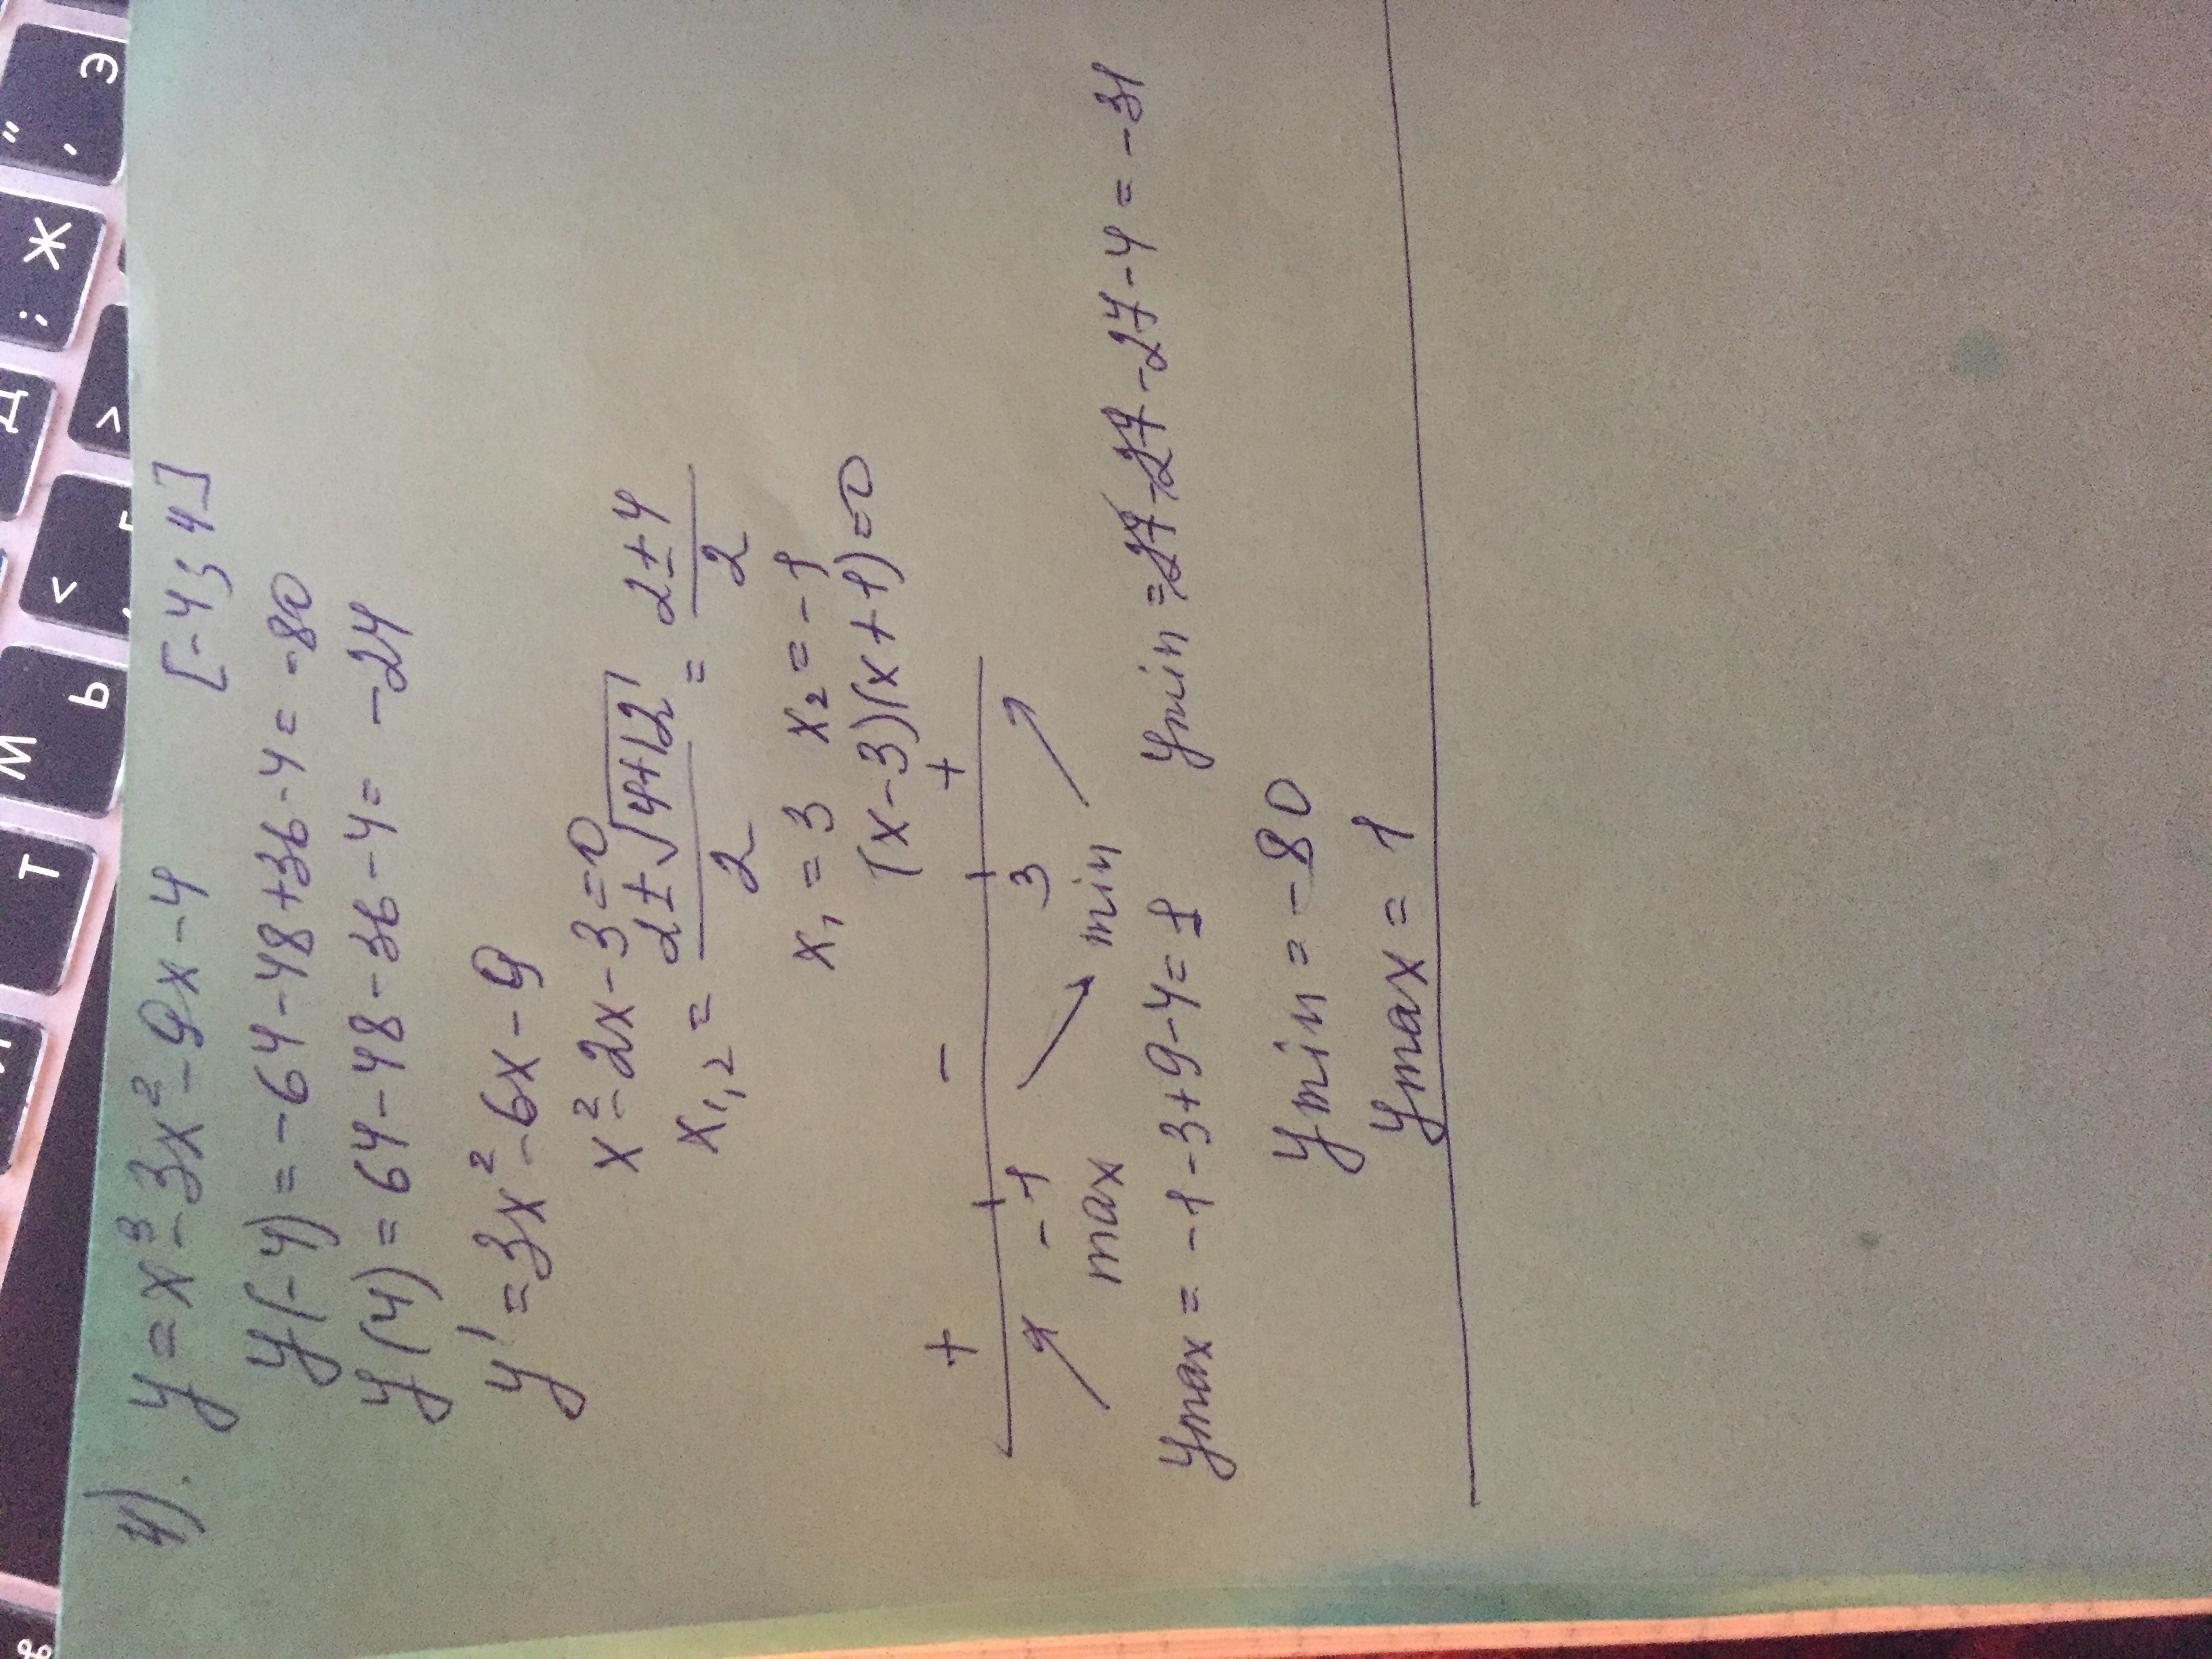 4). y = x³ - 3x² - 9x - 4 [-4; 4]
y(-4) = -64 - 48 + 36 - 4 = -80
y(4) = 64 - 48 - 36 - 4 = -24
y' = 3x² - 6x - 9
x² - 2x - 3 = 0
x₁,₂ = (2 ± √(4+12))/2 = (2 ± 4)/2
x₁ = 3 x₂ = -1
(x-3)(x+1) = 0
+ - +
-1 3
max min
ymax = -1 - 3 + 9 - 4 = 1 ymin = 27 - 27 - 27 - 4 = -31
ymin = -80
ymax = 1
Э
" ,
Ж
;
Д
>
<
Ь
М
Т